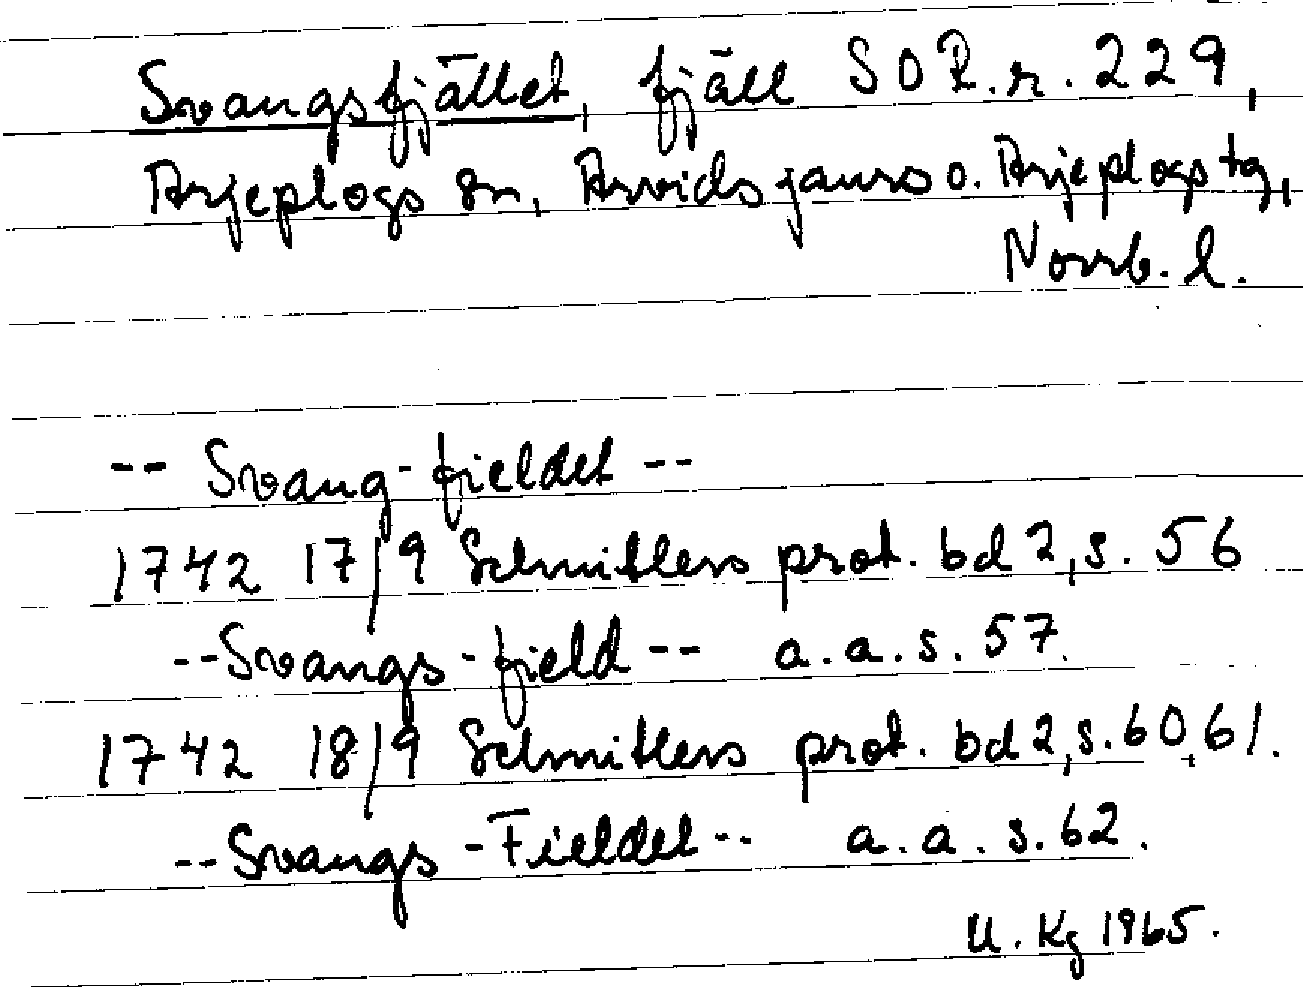 Svangsfjället, fjäll SOR.r. 229,
Arjeplogs sn, Arvidsjaurs o. Arjeplogs tg,
Norrb. l.
-- Svang-fieldet --
1742 17/9 Schnitlers prot. bd 2, s. 56
-- Svangs-field -- a.a.s. 57.
1742 18/9 Schnitlers prot. bd 2, s. 60, 61.
-- Svangs-Fieldet -- a.a. s. 62.
U. Kg 1965.